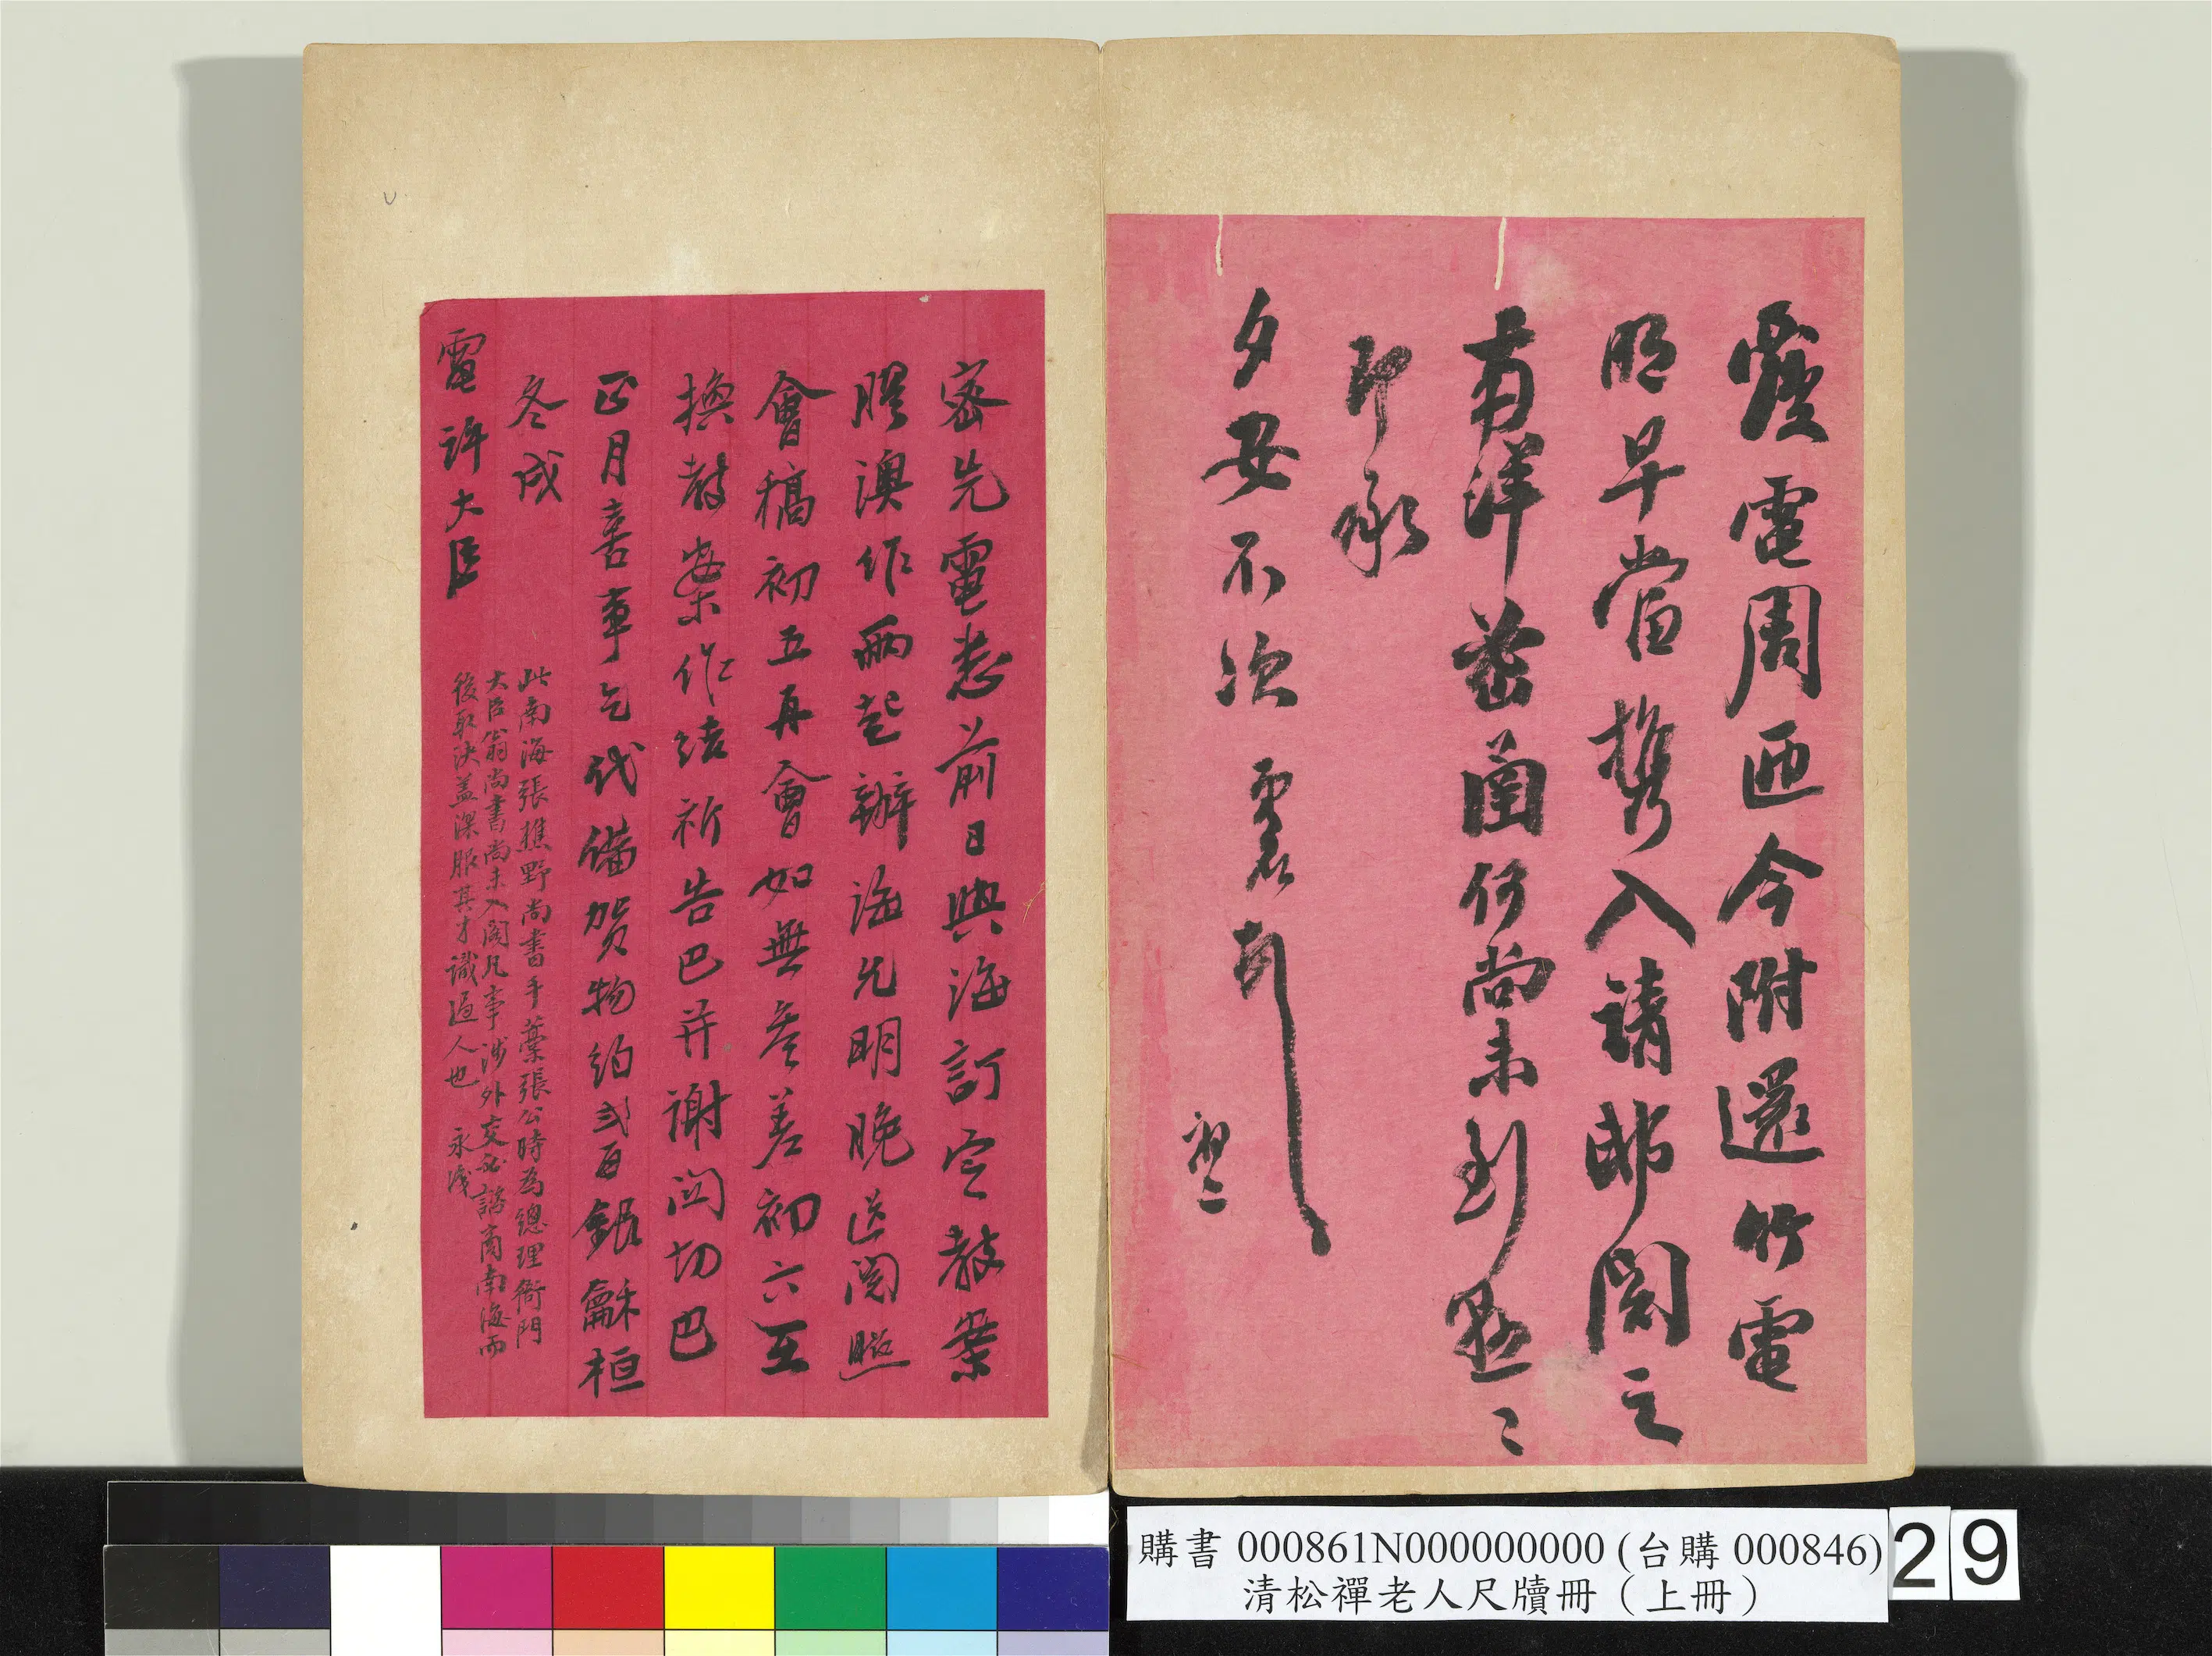 電周匝今附還竹電
明早當攜入請邸閱之
南洋密函何尚未到
即承
夕安不次
初二
密先電悉前日與海訂定教案
膠澳作兩起辦海允明晚送閱照
會稿初五再會如無參差初六互
換教案作結祈告巴并謝關切巴
正月喜事乞代備賀物約弍百銀龢桓
冬戌
電許大臣
此南海張樵野尚書手藁張公時為總理衙門
大臣翁尚書尚未入閣凡事涉外交必諮商南海而
後取決蓋深服其才識過人也 永
購書 000861N000000000 (台購 000846)
清松禪老人尺牘冊（上冊）
29